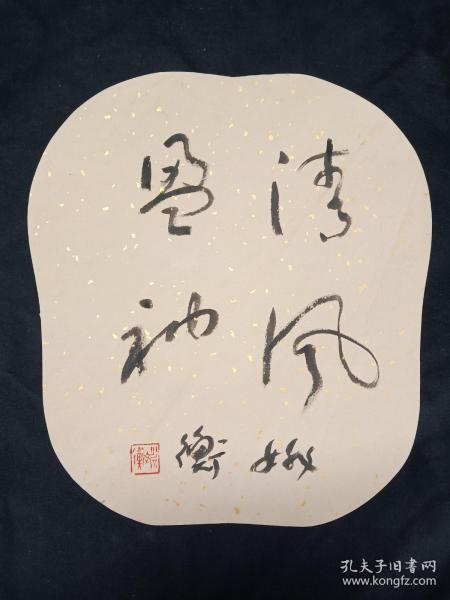 清风
盈袖
姚衡
孔夫子旧书网
www.kongfz.com